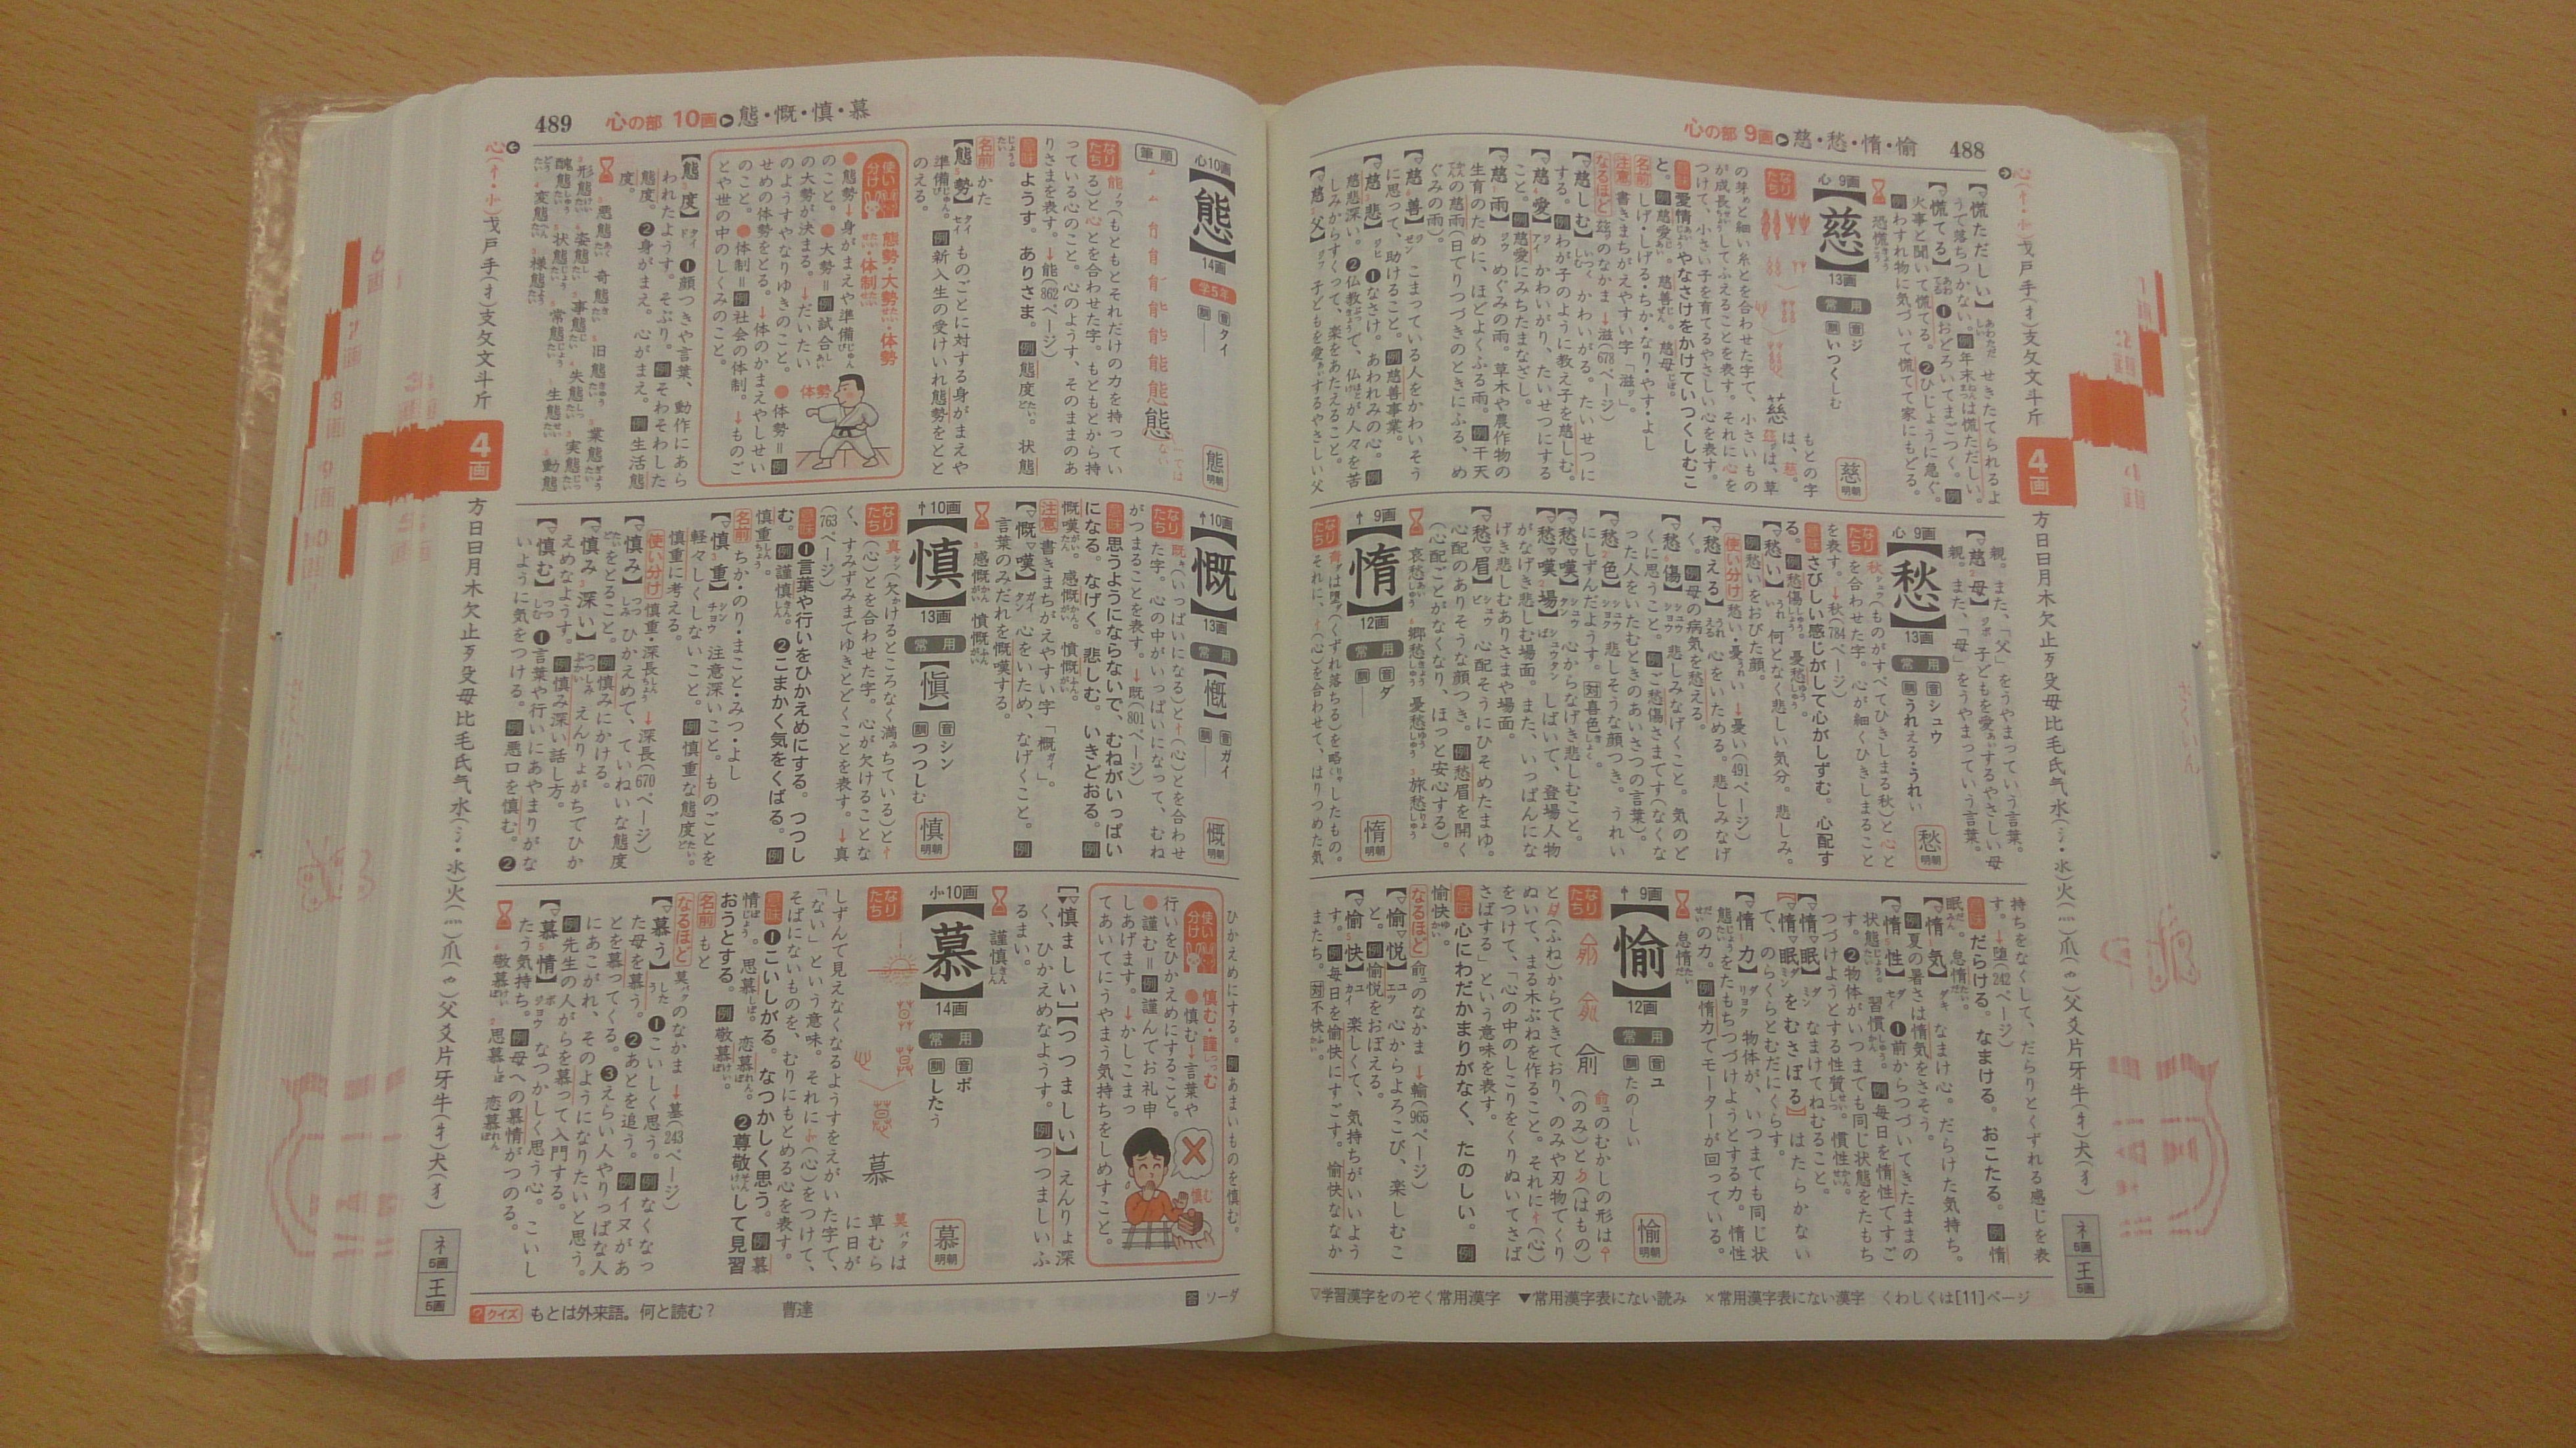 488
心の部 9画 慈・愁・惰・愉
【慌ただしい】せきたてられるよ
うで落ちつかない。例年末は慌ただしい。
【慌てる】❶おどろいてまごつく。例
火事と聞いて慌てる。❷ひじょうに急ぐ。
例わすれ物に気づいて慌てて家にもどる。
恐慌
心 9画
【慈】
13画
常用
音ジ
訓いつくしむ
慈 明朝
なりたち
もとの字
は、慈。
茲は、草
の芽と細い糸とを合わせた字で、小さいもの
が成長してふえることを表す。それに心を
つけて、小さい子を育てるやさしい心を表す。
意味 愛情やなさけをかけていつくしむこ
と。例慈愛。慈善。慈母。
名前 しげ・しげる・ちか・なり・やす・よし
注意 書きまちがえやすい字「滋」。
なるほど 茲のなかま →滋(678ページ)
【慈しむ】かわいがる。たいせつに
する。例わが子のように教え子を慈しむ。
【慈愛】かわいがり、たいせつにする
こと。例慈愛にみちたまなざし。
【慈雨】めぐみの雨。草木や農作物の
生育のために、ほどよくふる雨。例干天
の慈雨(日でりつづきのときにふる、め
ぐみの雨)。
【慈善】こまっている人をかわいそう
に思って、助けること。例慈善事業。
【慈悲】❶なさけ。あわれみの心。例
慈悲深い。❷仏教で、仏が人々を苦
しみからすくって、楽をあたえること。
【慈父】子どもを愛するやさしい父
親。また、「父」をうやまっていう言葉。
【慈母】子どもを愛するやさしい母
親。また、「母」をうやまっていう言葉。
心 9画
【愁】
13画
常用
音シュウ
訓うれえる・うれい
愁 明朝
なりたち 秋(ものがすべてひきしまる秋)と心と
を合わせた字。心が細くひきしまること
を表す。→秋(784ページ)
意味 さびしい感じがして心がしずむ。心配す
る。例愁傷。憂愁。
【愁い】何となく悲しい気分。悲しみ。
例愁いをおびた顔。
使い分け 愁い・憂い→憂い(491ページ)
【愁える】心をいためる。悲しみなげ
く。例母の病気を愁える。
【愁傷】悲しみなげくこと。気のど
くに思うこと。例ご愁傷さまです(なくな
った人をいたむときのあいさつの言葉)。
【愁色】悲しそうな顔つき。うれい
にしずんだようす。対喜色。
【愁嘆】心からなげき悲しむこと。
【愁嘆場】しばいで、登場人物
がなげき悲しむ場面。また、いっぱんにな
げき悲しむありさまや場面。
【愁眉】心配そうにひそめたまゆ。
心配のありそうな顔つき。例愁眉を開く
(心配ごとがなくなり、ほっと安心する)。
哀愁 郷愁 憂愁 旅愁
忄 9画
【惰】
12画
常用
音ダ
訓―
惰 明朝
なりたち は墮(くずれ落ちる)を略したもの。
それに、忄(心)を合わせて、はりつめた気
持ちをなくして、だらりとくずれる感じを表
す。→堕(242ページ)
意味 だらける。なまける。おこたる。例惰
眠。怠惰。
【惰気】なまけ心。だらけた気持ち。
例夏の暑さは惰気をさそう。
【惰性】❶前からつづいてきたままの
状態。習慣。例毎日を惰性ですご
す。❷物体がいつまでも同じ状態をたもち
つづけようとする性質。慣性。
【惰眠】なまけてねむること。
【惰眠をむさぼる】はたらかない
で、のらくらとむだにくらす。
【惰力】物体が、いつまでも同じ状
態をたもちつづけようとする力。惰性
の力。例惰力でモーターが回っている。
怠惰
忄 9画
【愉】
12画
常用
音ユ
訓たのしい
愉 明朝
なりたち
兪のむかしの形は
(のみ)と(はもの)
と(ふね)からできており、のみや刃物でくり
ぬいて、まる木ぶねを作ること。それに忄(心)
をつけて、「心の中のしこりをくりぬいてさば
さばする」という意味を表す。
意味 心にわだかまりがなく、たのしい。例
愉快。
なるほど 兪のなかま →輸(965ページ)
【愉悦】心からよろこび、楽しむこ
と。例愉悦をおぼえる。
【愉快】楽しくて、気持ちがいいよう
す。例毎日を愉快にすごす。愉快ななか
またち。対不快。
▽学習漢字をのぞく常用漢字 ▼常用漢字表にない読み ×常用漢字表にない漢字 くわしくは[11]ページ
心(忄・㣺)戈戸手(扌)支攵文斗斤
4画
方日曰月木欠止歹殳毋比毛氏气水(氵・氺)火(灬)爪(爫)父爻片牙牛(牜)犬(犭)
礻5画
王5画
489
心の部 10画 態・慨・慎・慕
心10画
【態】
14画
学5年
音タイ
訓―
態 明朝
筆順
なりたち 能(もともとそれだけの力を持ってい
る)と心とを合わせた字。もともとから持
っている心のこと。心のようす、そのままのあ
りさまを表す。→能(862ページ)
意味 ようす。ありさま。例態度。状態
名前 かた
【態勢】ものごとに対する身がまえや
準備。例新入生の受けいれ態勢をとと
のえる。
使い分け 態勢・大勢・体勢・体制
●態勢→身がまえや準備
のこと。●大勢=例試合
の大勢が決まる。→だいたい
のようすやなりゆきのこと。●体勢=例
せめの体勢をとる。→体のかまえやしせい
のこと。●体制=例社会の体制。→ものご
とや世の中のしくみのこと。
体勢
【態度】❶顔つきや言葉、動作にあら
われたようす。そぶり。例そわそわした
態度。❷身がまえ。心がまえ。例生活態
度。
悪態 奇態 旧態 業態
形態 姿態 事態 失態 実態
醜態 状態 常態 生態 動態
変態 様態
忄10画
【慨】
13画
常用
【慨】
音ガイ
訓―
慨 明朝
なりたち 既(いっぱいになる)と忄(心)とを合わせ
た字。心の中がいっぱいになって、むね
がつまることを表す。→既(801ページ)
意味 思うようにならないで、むねがいっぱい
になる。なげく。悲しむ。いきどおる。例
慨嘆。感慨。憤慨。
注意 書きまちがえやすい字「概」。
【慨嘆】心をいため、なげくこと。例
言葉のみだれを慨嘆する。
感慨 憤慨
忄10画
【慎】
13画
常用
【愼】
音シン
訓つつしむ
慎 明朝
なりたち 真(欠けるところなく満ちている)と忄
(心)とを合わせた字。心が欠けることな
く、すみずみまでゆきとどくことを表す。→真
(763ページ)
意味 ❶言葉や行いをひかえめにする。つつし
む。例謹慎。❷こまかく気をくばる。例
慎重。
名前 ちか・のり・まこと・みつ・よし
【慎重】注意深いこと。ものごとを
軽々しくしないこと。例慎重な態度。
慎重に考える。
使い分け 慎重・深長→深長(670ページ)
【慎み】ひかえめで、ていねいな態度
をとること。例慎みにかける。
【慎み深い】えんりょがちでひか
えめなようす。例慎み深い話し方。
【慎む】❶言葉や行いにあやまりがな
いように気をつける。例悪口を慎む。❷
ひかえめにする。例あまいものを慎む。
使い分け 慎む・謹む
●慎む→言葉や
行いをひかえめにすること。
●謹む=例謹んでお礼申
しあげます。→かしこまっ
てあいてにうやまう気持ちをしめすこと。
慎む
【慎ましい】【つつましい】えんりょ深
く、ひかえめなようす。例つつましいふ
るまい。
謹慎
㣺10画
【慕】
14画
常用
音ボ
訓したう
慕 明朝
なりたち
莫は
草むら
に日が
しずんで見えなくなるようすをえがいた字で、
「ない」という意味。それに㣺(心)をつけて、
そばにないものを、むりにもとめる心を表す。
意味 ❶こいしがる。なつかしく思う。例慕
情。思慕。恋慕。❷尊敬して見習
おうとする。例敬慕。
名前 もと
なるほど 莫のなかま →墓(243ページ)
【慕う】❶こいしく思う。例なくなっ
た母を慕う。❷あとを追う。例イヌがあ
とを慕ってくる。❸えらい人やりっぱな人
にあこがれ、そのようになりたいと思う。
例先生の人がらを慕って入門する。
【慕情】なつかしく思う心。こいし
たう気持ち。例母への慕情がつのる。
敬慕 思慕 恋慕
?クイズ もとは外来語。何と読む? 曹達
答 ソーダ
心(忄・㣺)戈戸手(扌)支攵文斗斤
4画
方日曰月木欠止歹殳毋比毛氏气水(氵・氺)火(灬)爪(爫)父爻片牙牛(牜)犬(犭)
礻5画
王5画